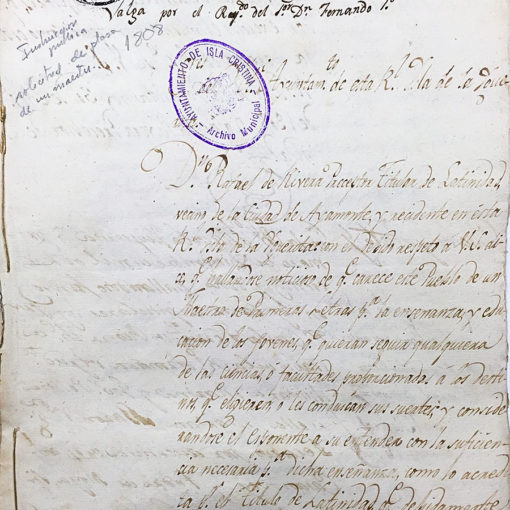 Valga por el Reyno. del Sor. Dn. Fernando 7o.
Instrucción
pública
1808
solicitud de plaza
de un maestro
AYUNTAMIENTO DE ISLA CRISTINA
Archivo Municipal
Ayuntam to de esta Rl. Isla de la
Dn. Rafael de Rivera Preceptor Titular de Latinidad,
vecino de la Ciudad de Ayamonte, y residente en esta
Rl. Isla de la con el devido respeto a V.S. di-
ce, qe. hallandose noticioso de qe. carece este Pueblo de un
Maestro de Primeras Letras pa. la enseñanza, y edu-
cacion de los Jovenes, qe. quieran seguir qualquiera
de las ciencias, ó facultades proporcionadas á los desti-
nos, qe. eligieren, o les conduzcan sus suertes; y conside-
randose el Esponente a su entender con la suficien-
cia necesaria pa. dicha enseñanza, como lo acredi-
ta pr. el titulo de Latinidad, qe. debidamente